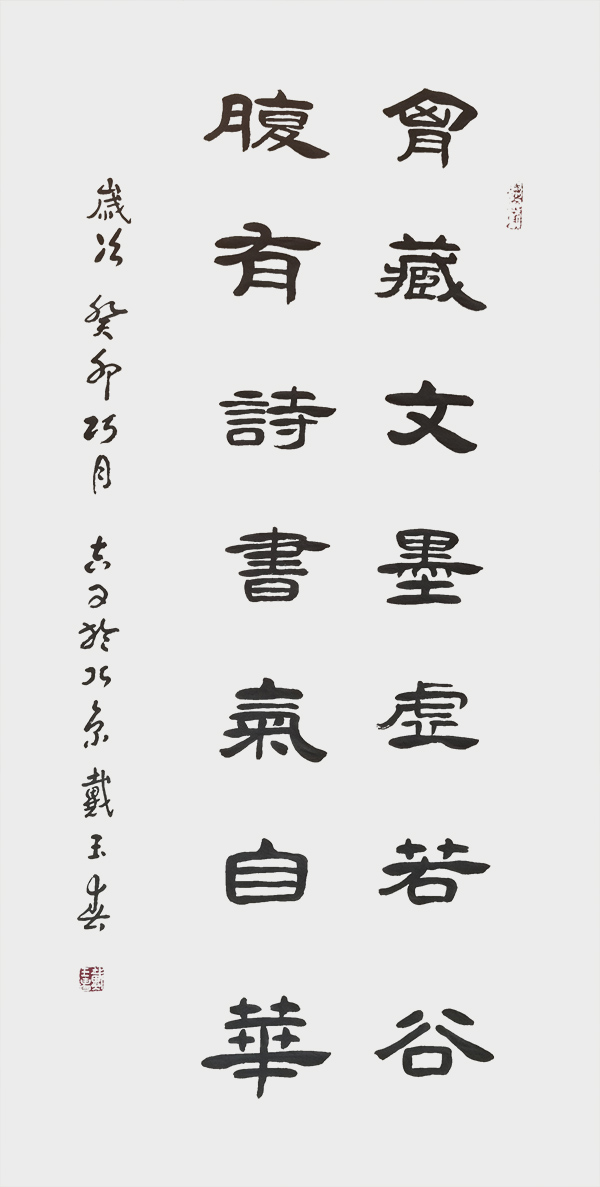 胷藏文墨虛若谷
腹有詩書氣自華
歲次 癸卯巧月 吉日於北京 戴玉春